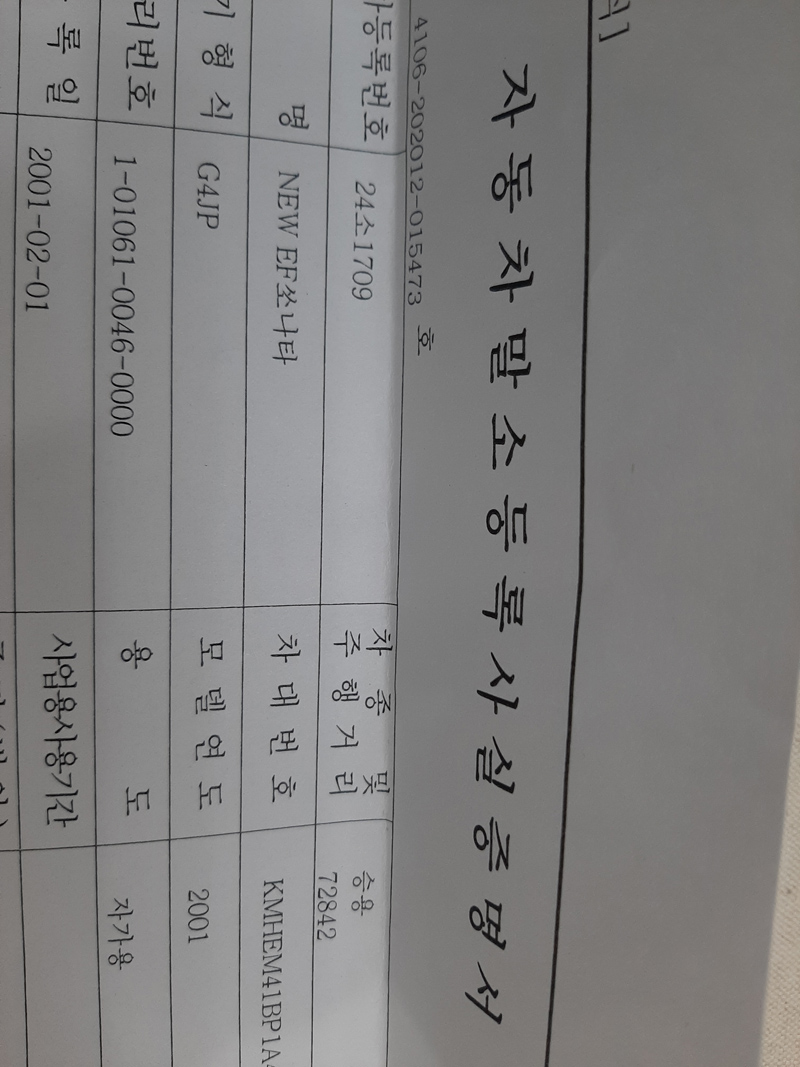 식]
자 동 차 말 소 등 록 사 실 증 명 서
4106-202012-015473 호
등록번호 24소1709 차 종 및 주 행 거 리 승용 72842
명 NEW EF쏘나타 차 대 번 호 KMHEM41BP1A
기 형 식 G4JP 모 델 연 도 2001
리번호 1-01061-0046-0000 용 도 자가용
록 일 2001-02-01 사업용사용기간